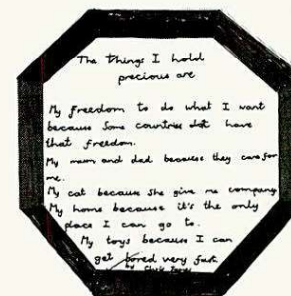 The things I hold
precious are
My freedom to do what I want
because some countries dot have
that freedom.
My mum and dad because they care for
me.
My cat because she give me company
My home because it's the only
place I can go to.
My toys because I can
get bored very fast.
by Chris Jones